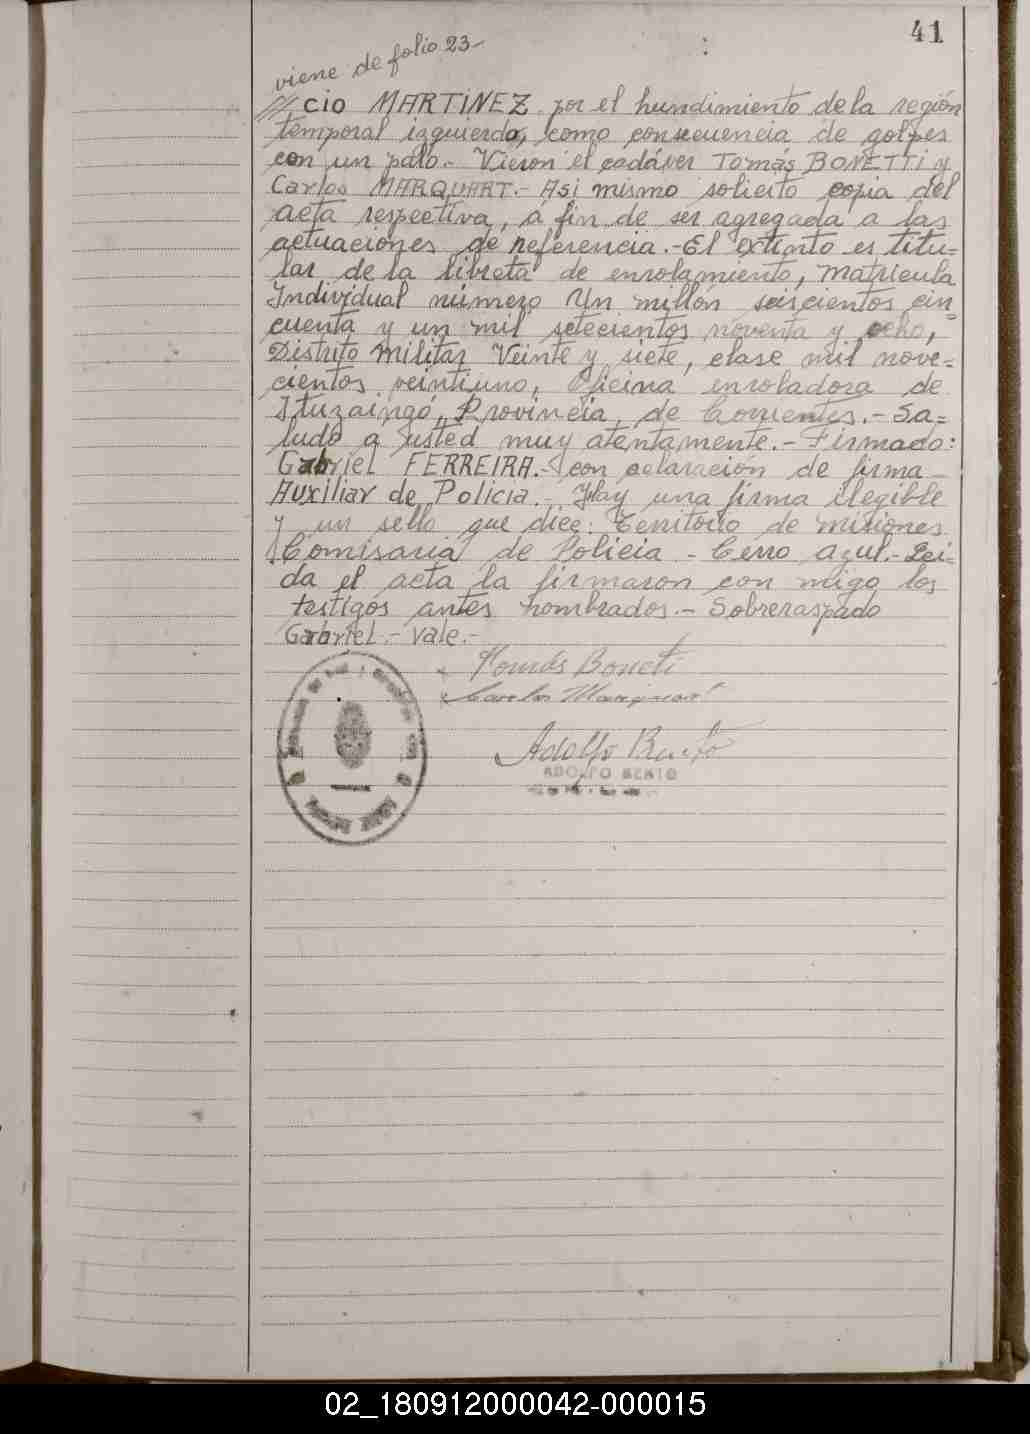 41
viene de folio 23-
/// cio MARTINEZ por el hundimiento de la región
temporal izquierda, como consecuencia de golpes
con un palo.- Vieron el cadáver Tomás BONETTI y
Carlos MARQUART.- Asi mismo solicito copia del
acta respectiva, á fin de ser agregada a las
actuaciones de referencia.- El extinto es titu=
lar de la libreta de enrolamiento, Matricula
Individual número Un millón seiscientos cin=
cuenta y un mil setecientos noventa y ocho,
Distrito Militar Veinte y siete, clase mil nove=
cientos veintiuno, Oficina enroladora de
Ituzaingó, Provincia de Corrientes.- Sa=
ludo a usted muy atentamente.- Firmado:
Gabriel FERREIRA.- con aclaración de firma
Auxiliar de Policia.- Hay una firma ilegible
y un sello que dice: Territorio de Misiones
Comisaria de Policia - Cerro Azul.- Lei=
da el acta la firmaron con migo los
testigos antes nombrados.- Sobreraspado
Gabriel.- Vale.-
Tomás Boneti
Carlos
Adolfo Benito
ADOLFO BENITO
02_180912000042-000015